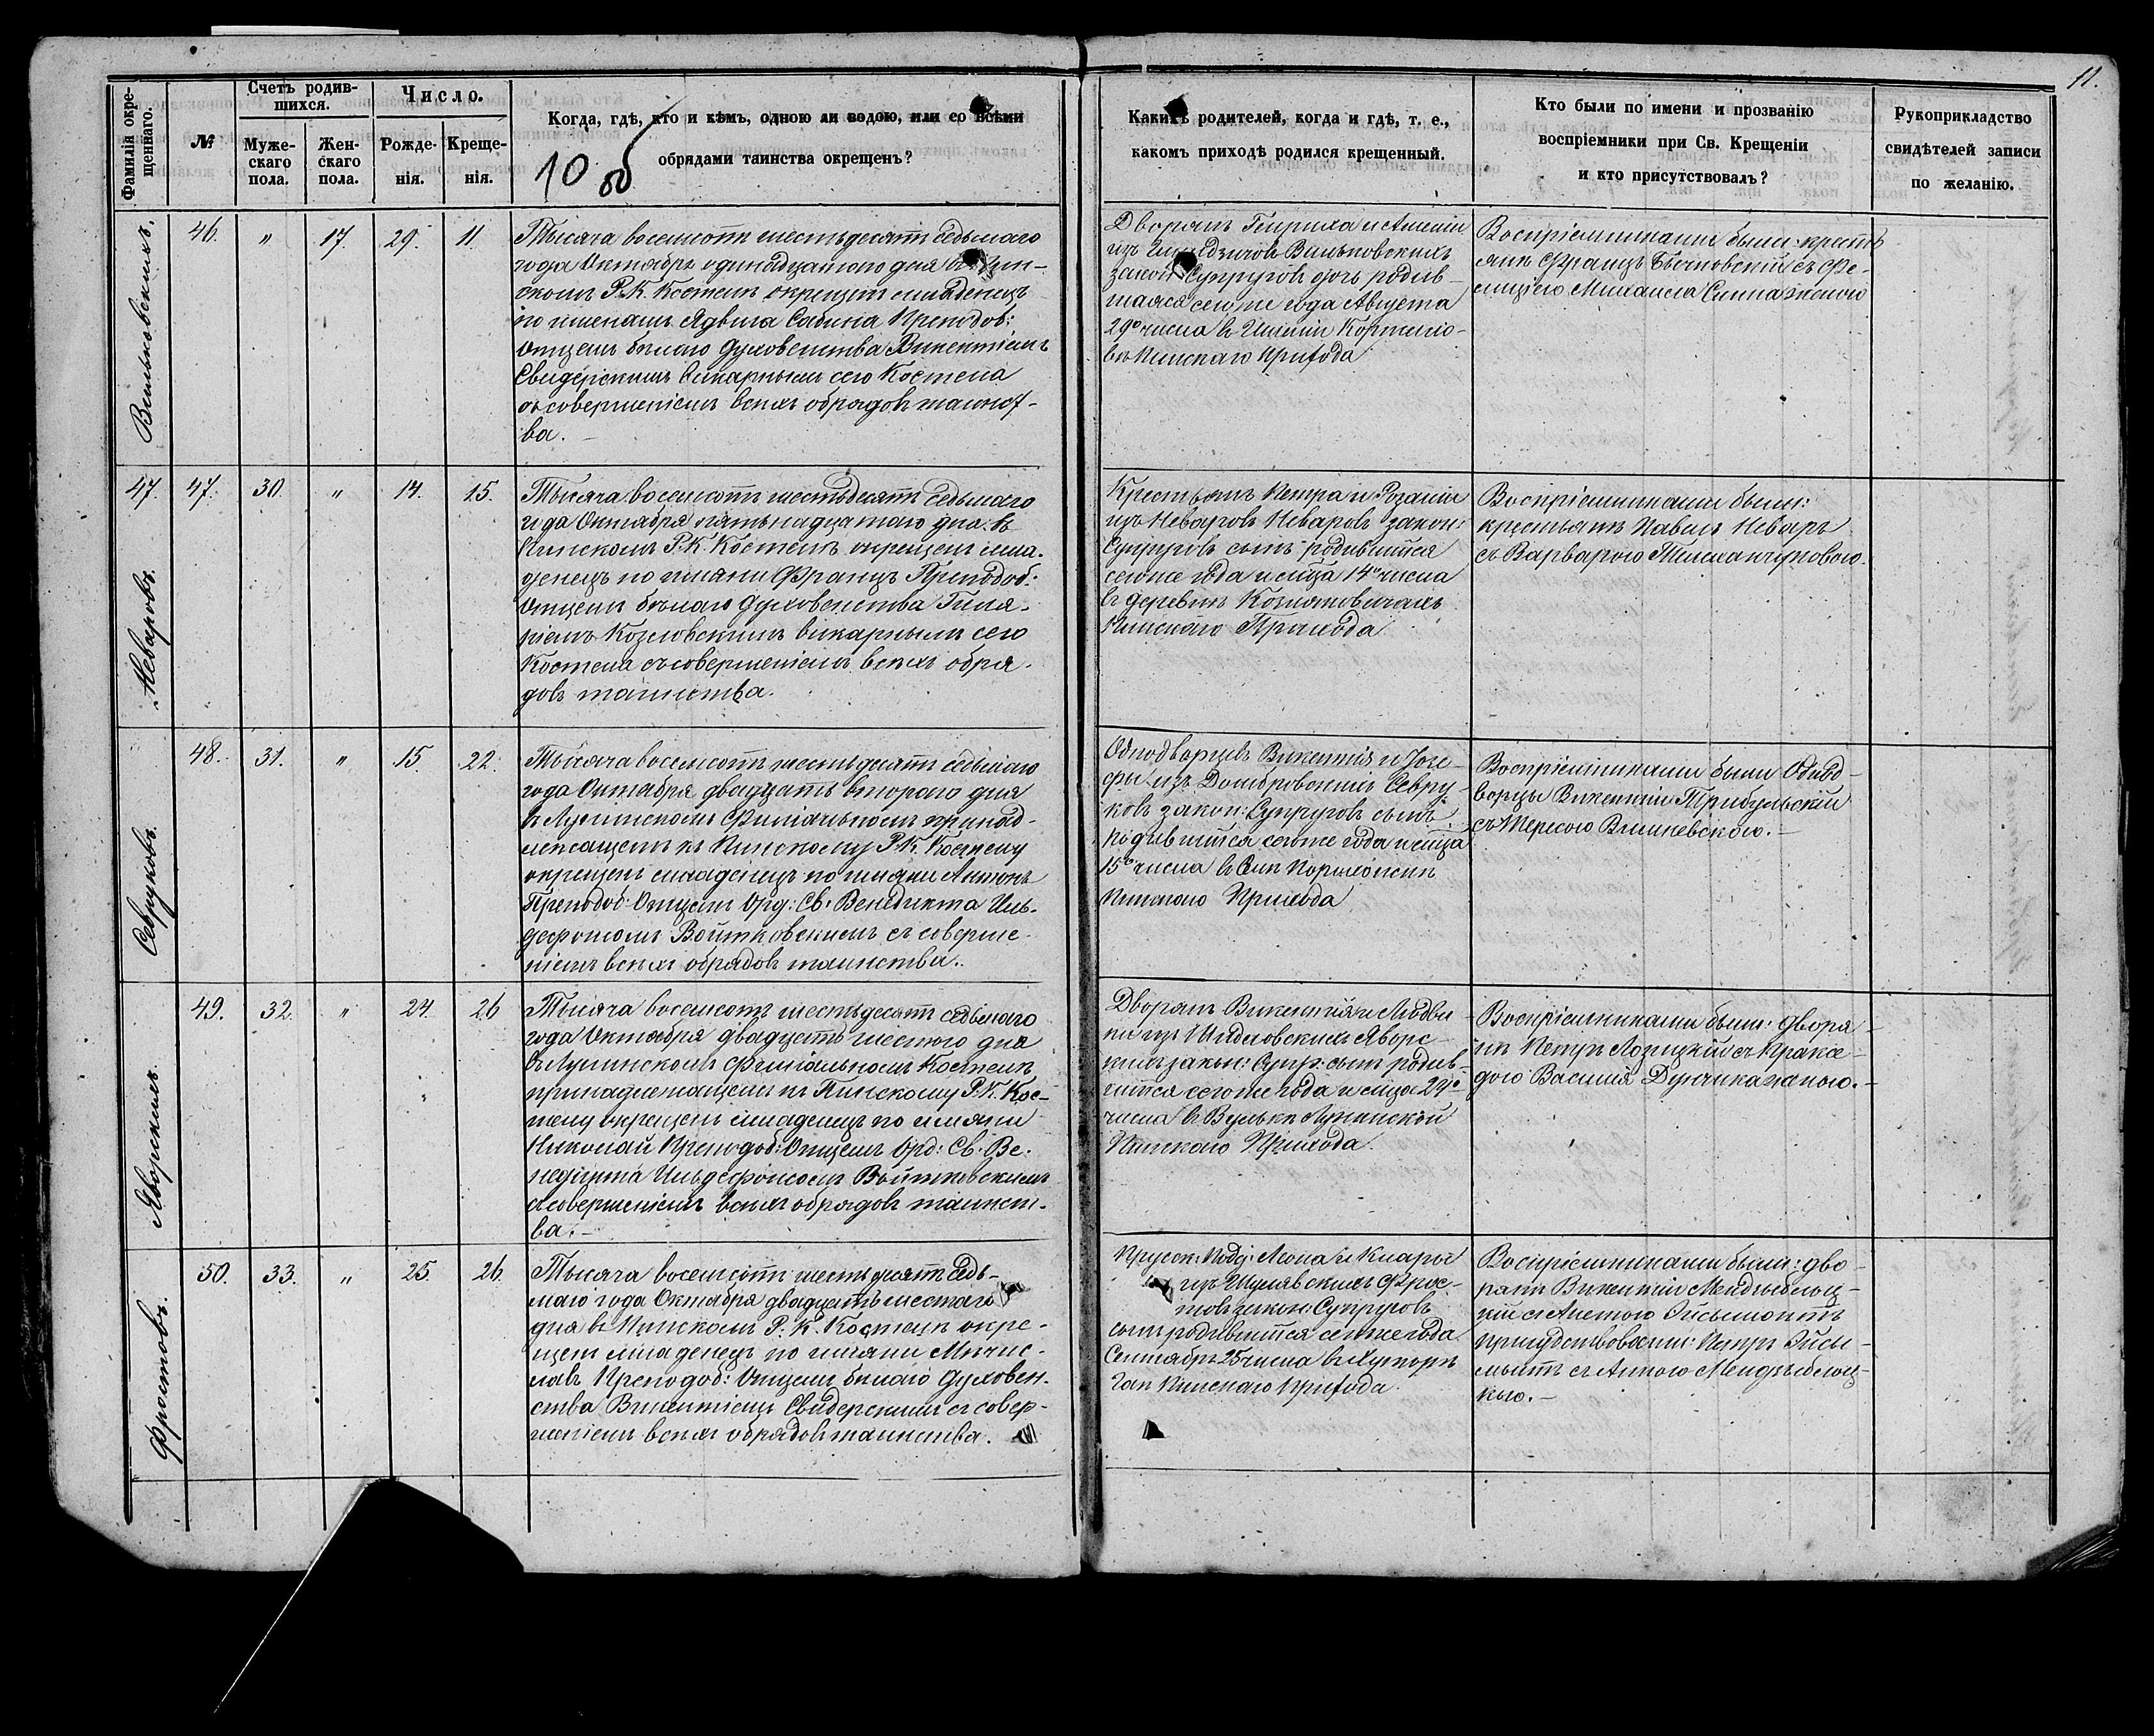 11.
Фамилія окре-
щеннаго.
№
Счетъ родив-
шихся.
Муже-
скаго
пола.
Жен-
скаго
пола.
Число.
Рожде-
нія.
Креще-
нія.
Когда, гдѣ, кто и кѣмъ, одною ли водою, или со всѣми
обрядами таинства окрещенъ?
10 об
Какихъ родителей, когда и гдѣ, т. е.,
какомъ приходѣ родился крещенный.
Кто были по имени и прозванію
воспріемники при Св. Крещеніи
и кто присутствовалъ?
Рукоприкладство
свидѣтелей записи
по желанію.
Вильковскихъ.
46. " 17. 29. 11.
Тысяча восемсотъ шестьдесятъ седьмаго
года Октября одинадцатаго дня въ Пин-
скомъ Р. К. Костелѣ окрещенъ младенецъ
по именамъ Ядвига Сабина Преподоб:
Отцемъ бѣлаго духовенства Викентіемъ
Свидерскимъ Викарнымъ сего Костела
съ совершеніемъ всѣхъ обрядовъ таинст-
ва. –
Дворянъ Генриха и
изъ Вильковскихъ
закон: Супруговъ дочь родив-
шаяся сего же года Августа
29го числа въ Имѣніи
Пинскаго Прихода
Воспріемниками были:
Францъ съ Фе-
лиціею Михаила женою
47. 47. 30. " 14. 15.
Неваровъ.
Тысяча восемсотъ шестьдесятъ седьмаго
года Октября пятьнадцатаго дня въ
Пинскомъ Р. К. Костелѣ окрещенъ мла-
денецъ по имяни Францъ Преподоб:
Отцемъ бѣлаго духовенства Гиля-
ріемъ Козловскимъ Викарнымъ сего
Костела съ совершеніемъ всѣхъ обря-
довъ таинства.
Крестьянъ Петра и Розаліи
изъ Неваровъ Неваровъ закон:
Супруговъ сынъ родившійся
сего же года и мѣсца 14го числа
въ деревнѣ Козляковичахъ
Пинскаго Прихода
Воспріемниками были:
крестьянѣ Павелъ Неваръ
съ Варварою
Севруковъ.
48. 31. " 15. 22.
Тысяча восемсотъ шестьдесятъ седьмаго
года Октября двадцать втораго дня
въ Лунинскомъ Филіальномъ принад-
лежащемъ къ Пинскому Р. К. Костелу
окрещенъ младенецъ по имяни Антонъ
Преподоб: Отцемъ Орд: Св: Бенедикта Иль-
дефонсомъ Войтковскимъ съ соверше-
ніемъ всѣхъ обрядовъ таинства.
Однодворцевъ Викентія и Юзе-
фы изъ Домбровскихъ Севру-
ковъ закон: Супруговъ сынъ
родившійся сего же года и мѣсца
15го числа въ
Пинскаго Прихода
Воспріемниками были Однод-
ворцы Викентій Трибульскій
съ Тересою Вишневскою. –
Яворскихъ.
49. 32. " 24. 26
Тысяча восемсотъ шестьдесятъ седьмаго
года Октября двадцать шестого дня
въ Лунинскомъ Филіальномъ Костелѣ
принадлежащемъ къ Пинскому Р. К. Кос-
телу окрещенъ младенецъ по имяни
Николай Преподоб: Отцемъ Орд: Св: Бе-
недикта Ильдефонсомъ Войтковскимъ
съ совершеніемъ всѣхъ обрядовъ таинст-
ва. –
Дворянъ Викентія и Людви-
ки изъ Шидловскихъ Яворс-
кихъ закон: Супр: сынъ родив-
шійся сего же года и мѣсца 24го
числа въ Вулькѣ Лунинской
Пинскаго Прихода.
Воспріемниками были: дворя-
не Петръ Лозицкій съ Праксе-
дою Василія Дунчика женою. –
Фростовъ.
50. 33. " 25. 26.
Тысяча восемсотъ шестьдесятъ седь-
маго года Октября двадцать шестаго
дня въ Пинскомъ Р. К. Костелѣ окре-
щенъ младенецъ по имяни Мечис-
лавъ Преподоб: Отцемъ бѣлаго духовен-
ства Викентіемъ Свидерскимъ съ совер-
шеніемъ всѣхъ обрядовъ таинства.
Прусск: Под: Леона и Клары
изъ Шулявскихъ Фрос-
товъ закон: Супруговъ
сынъ родившійся сего же года
Сентября 25 числа въ Хуторѣ
Гап Пинскаго Прихода.
Воспріемниками были: дво-
рянѣ Викентій
съ Анетою Эйсымонтъ
присудствовали: Петръ Эйсы-
монтъ съ Анною
кою. –